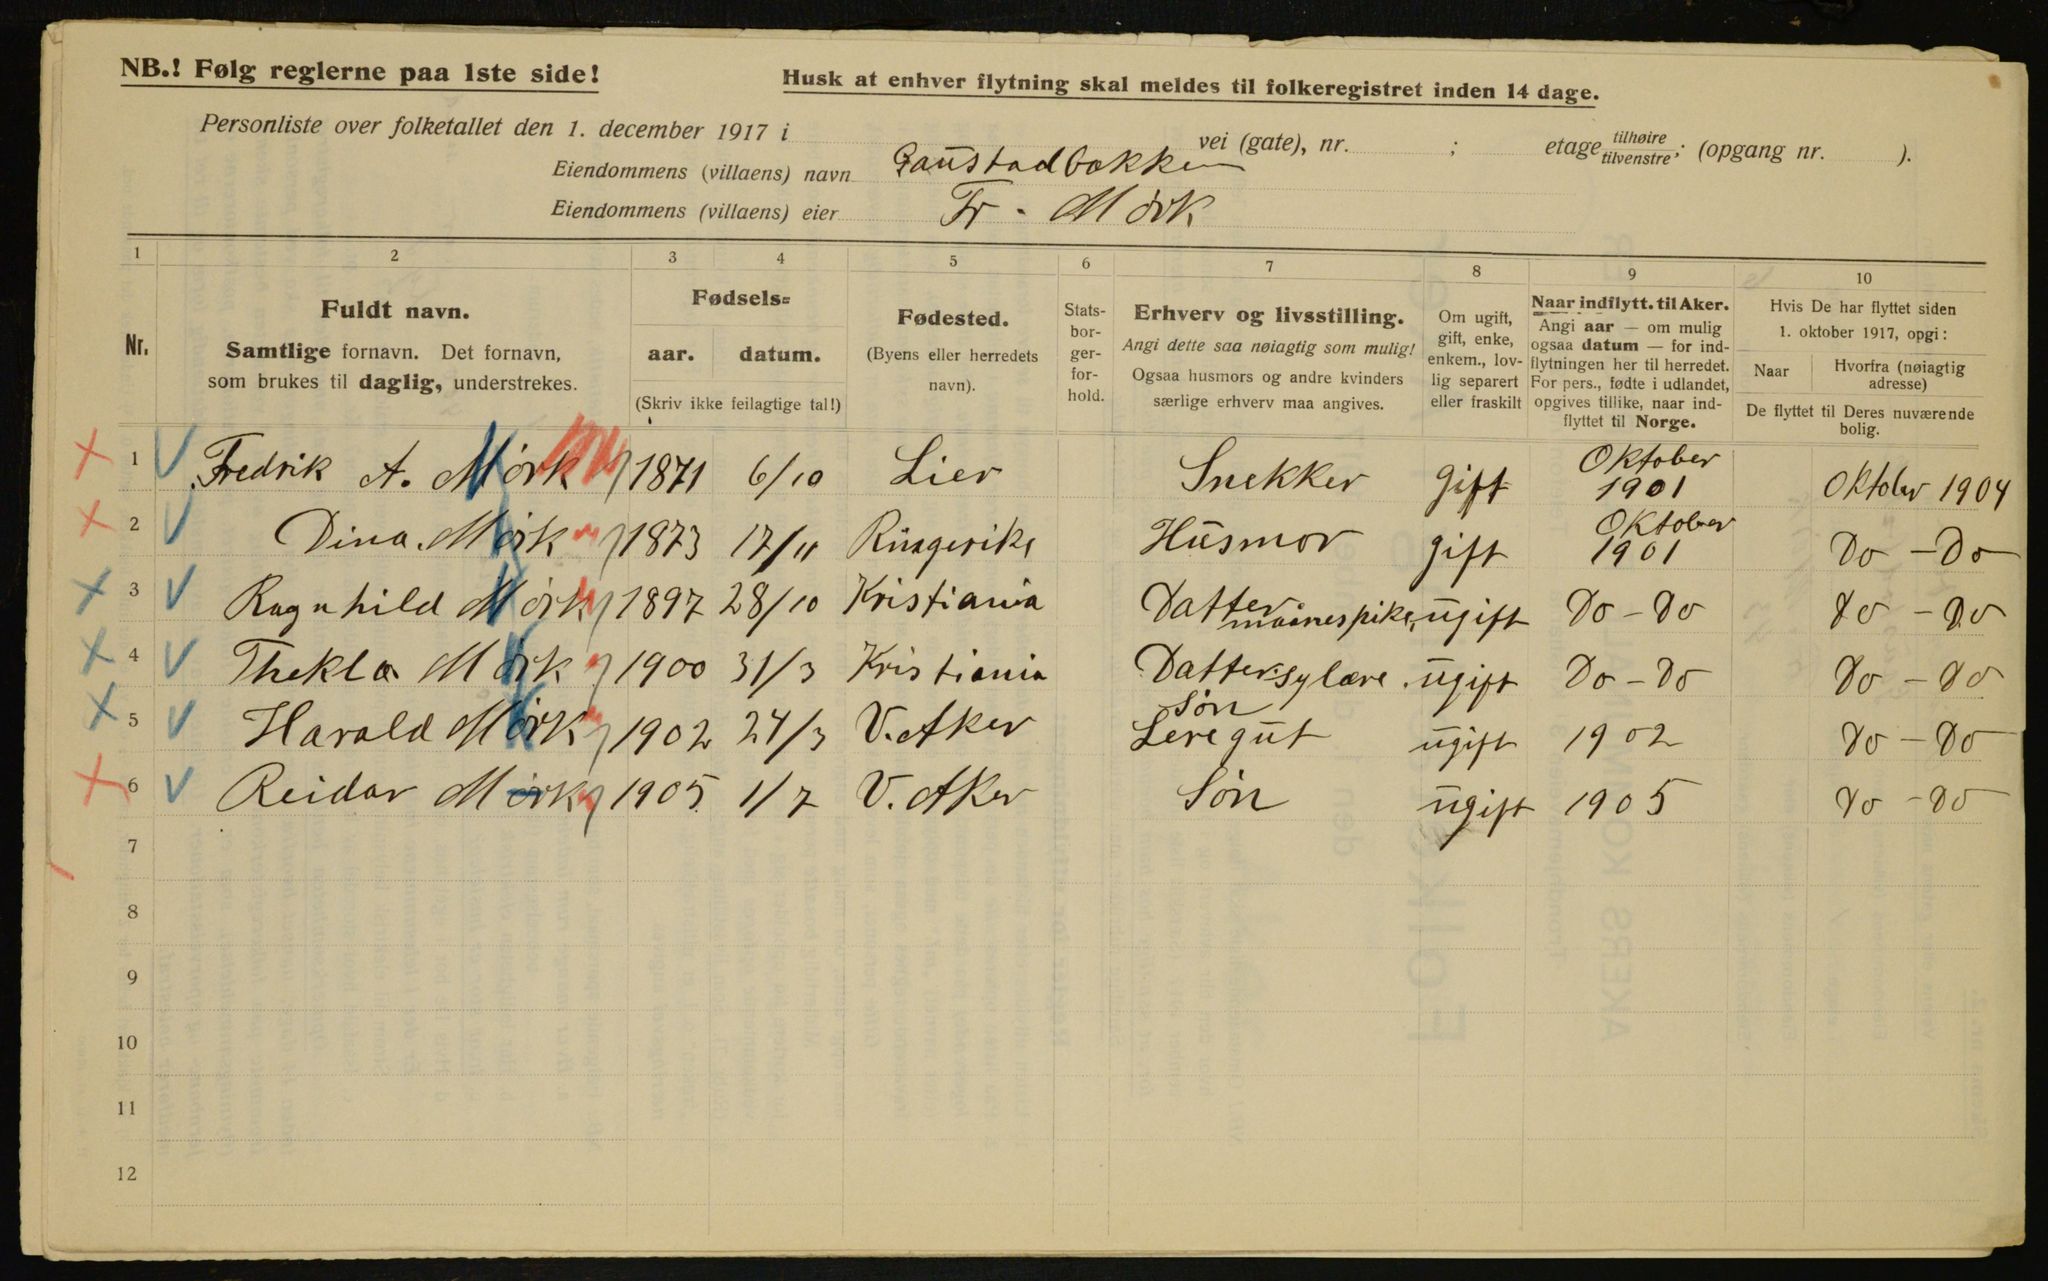 NB.! Følg reglerne paa 1ste side!
Husk at enhver flytning skal meldes til folkeregistret inden 14 dage.
Personliste over folketallet den 1. december 1917 i vei (gate), nr. ; etage tilhøire tilvenstre; (opgang nr. ).
Eiendommens (villaens) navn Gaustadbakken
Eiendommens (villaens) eier Fr. Mörk
1 2 3 4 5 6 7 8 9 10
Nr.
Fuldt navn.
Samtlige fornavn. Det fornavn,
som brukes til daglig, understrekes.
Fødsels=
aar. datum.
(Skriv ikke feilagtige tal!)
Fødested.
(Byens eller herredets
navn).
Stats-
bor-
ger-
for-
hold.
Erhverv og livsstilling.
Angi dette saa nøiagtig som mulig!
Ogsaa husmors og andre kvinders
særlige erhverv maa angives.
Om ugift,
gift, enke,
enkem., lov-
lig separert
eller fraskilt
Naar indflytt. til Aker.
Angi aar — om mulig
ogsaa datum — for ind-
flytningen her til herredet.
For pers., fødte i udlandet,
opgives tillike, naar ind-
flyttet til Norge.
Hvis De har flyttet siden
1. oktober 1917, opgi:
Naar
Hvorfra (nøiagtig
adresse)
De flyttet til Deres nuværende
bolig.
1 Fredrik A. Mörk 1871 6/10 Lier Snekker gift Oktober 1901 Oktober 1904
2 Dina Mörk 1873 17/11 Ringerike Husmor gift Oktober 1901 Do - Do
3 Ragnhild Mörk 1897 28/10 Kristiania Datter maanespike, ugift Do - Do Do - Do
4 Thekla Mörk 1900 31/3 Kristiania Datter sylære. ugift Do - Do Do - Do
5 Harald Mörk 1902 24/3 V. Aker Sön Leregut ugift 1902 Do - Do
6 Reidar Mörk 1905 1/7 V. Aker Sön ugift 1905 Do - Do
7
8
9
10
11
12